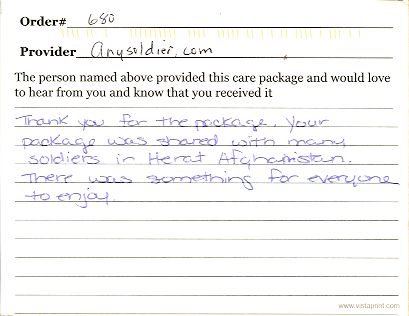 Order# 680
Provider Anysoldier.com
The person named above provided this care package and would love
to hear from you and know that you received it
Thank you for the package. Your
package was shared with many
soldiers in Herat Afghanistan.
There was something for everyone
to enjoy.
www.vistaprint.com